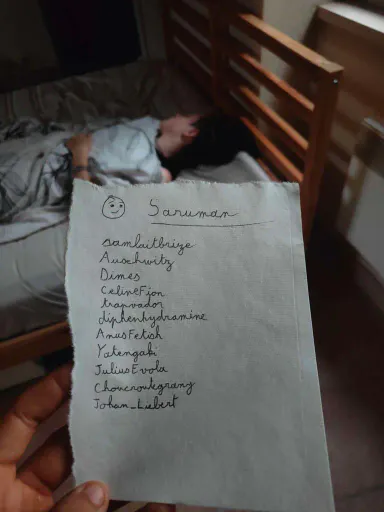 Saruman
samlaitbrize
Auschwitz
Dimes
CelineFion
trapvador
diphenhydramine
AnusFetish
Yatengaki
JuliusEvola
Choucroutegrany
Johan_Liebert